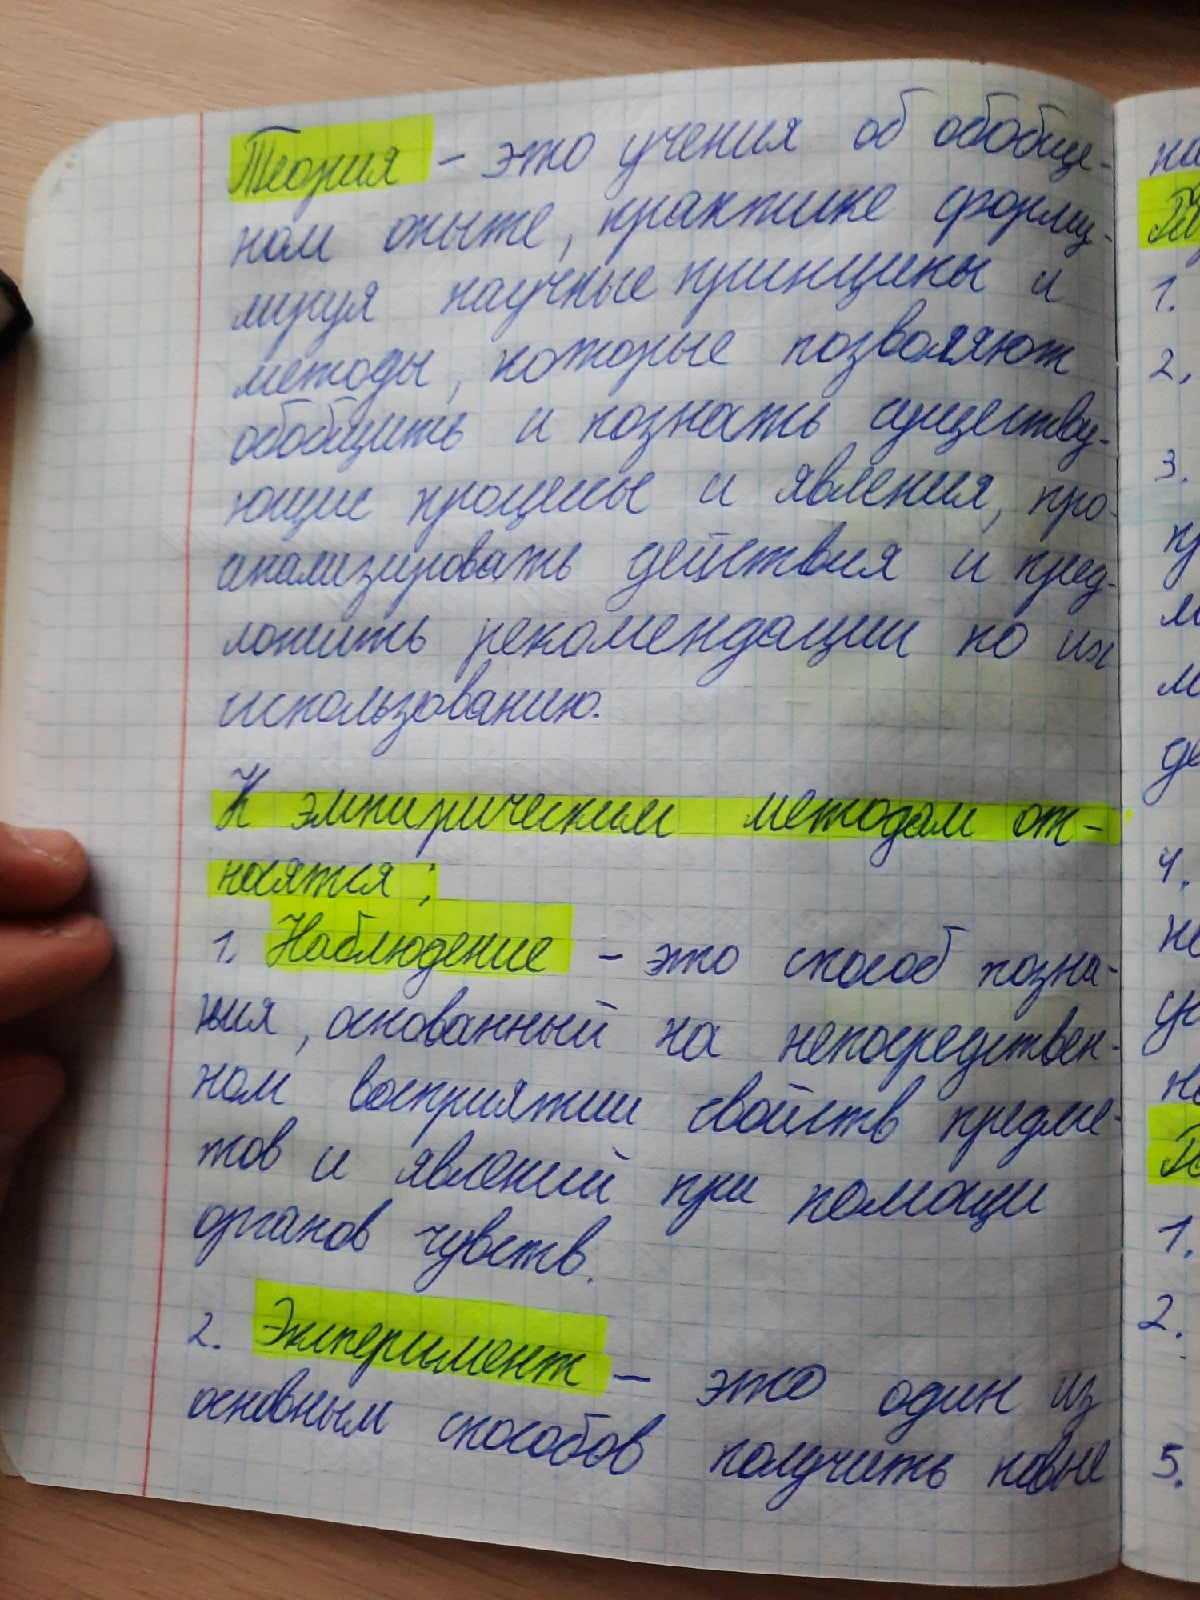 Теория - это учения об обобще-
ном опыте, практике форму-
лируя научные принципы и
методы, которые позволяют
обобщить и познать существу-
ющие процессы и явления, про-
анализировать действия и пред-
ложить рекомендации по их
использованию.
К эмпирическим методам от-
носятся:
1. Наблюдение - это способ позна-
ния, основанный на непосредствен-
ном восприятии свойств предме-
тов и явлений при помощи
органов чувств.
2. Эксперимент - это один из
основным способов получить новые
1.
2.
3.
4.
1.
2.
5.